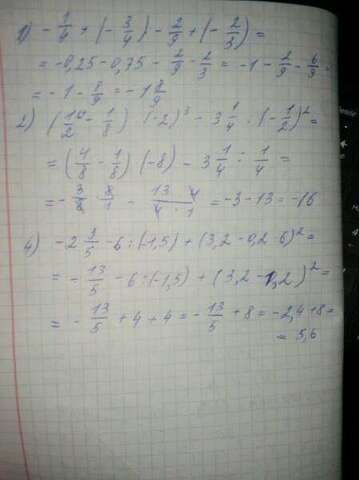 1) -1/4 + (-3/4) - 2/9 + (-2/3) =
= -0,25 - 0,75 - 2/9 - 2/3 = -1 - 2/9 - 6/9 =
= -1 - 8/9 = -1 8/9
2) (1/2 - 1/8) (-2)³ - 3 1/4 : (-1/2)² =
= (4/8 - 1/8) (-8) - 3 1/4 : 1/4 =
= -3/8 · 8/1 - 13·4/4·1 = -3 - 13 = -16
4) -2 3/5 - 6 : (-1,5) + (3,2 - 0,2·6)² =
= -13/5 - 6 : (-1,5) + (3,2 - 1,2)² =
= -13/5 + 4 + 4 = -13/5 + 8 = -2,4 + 8 =
= 5,6